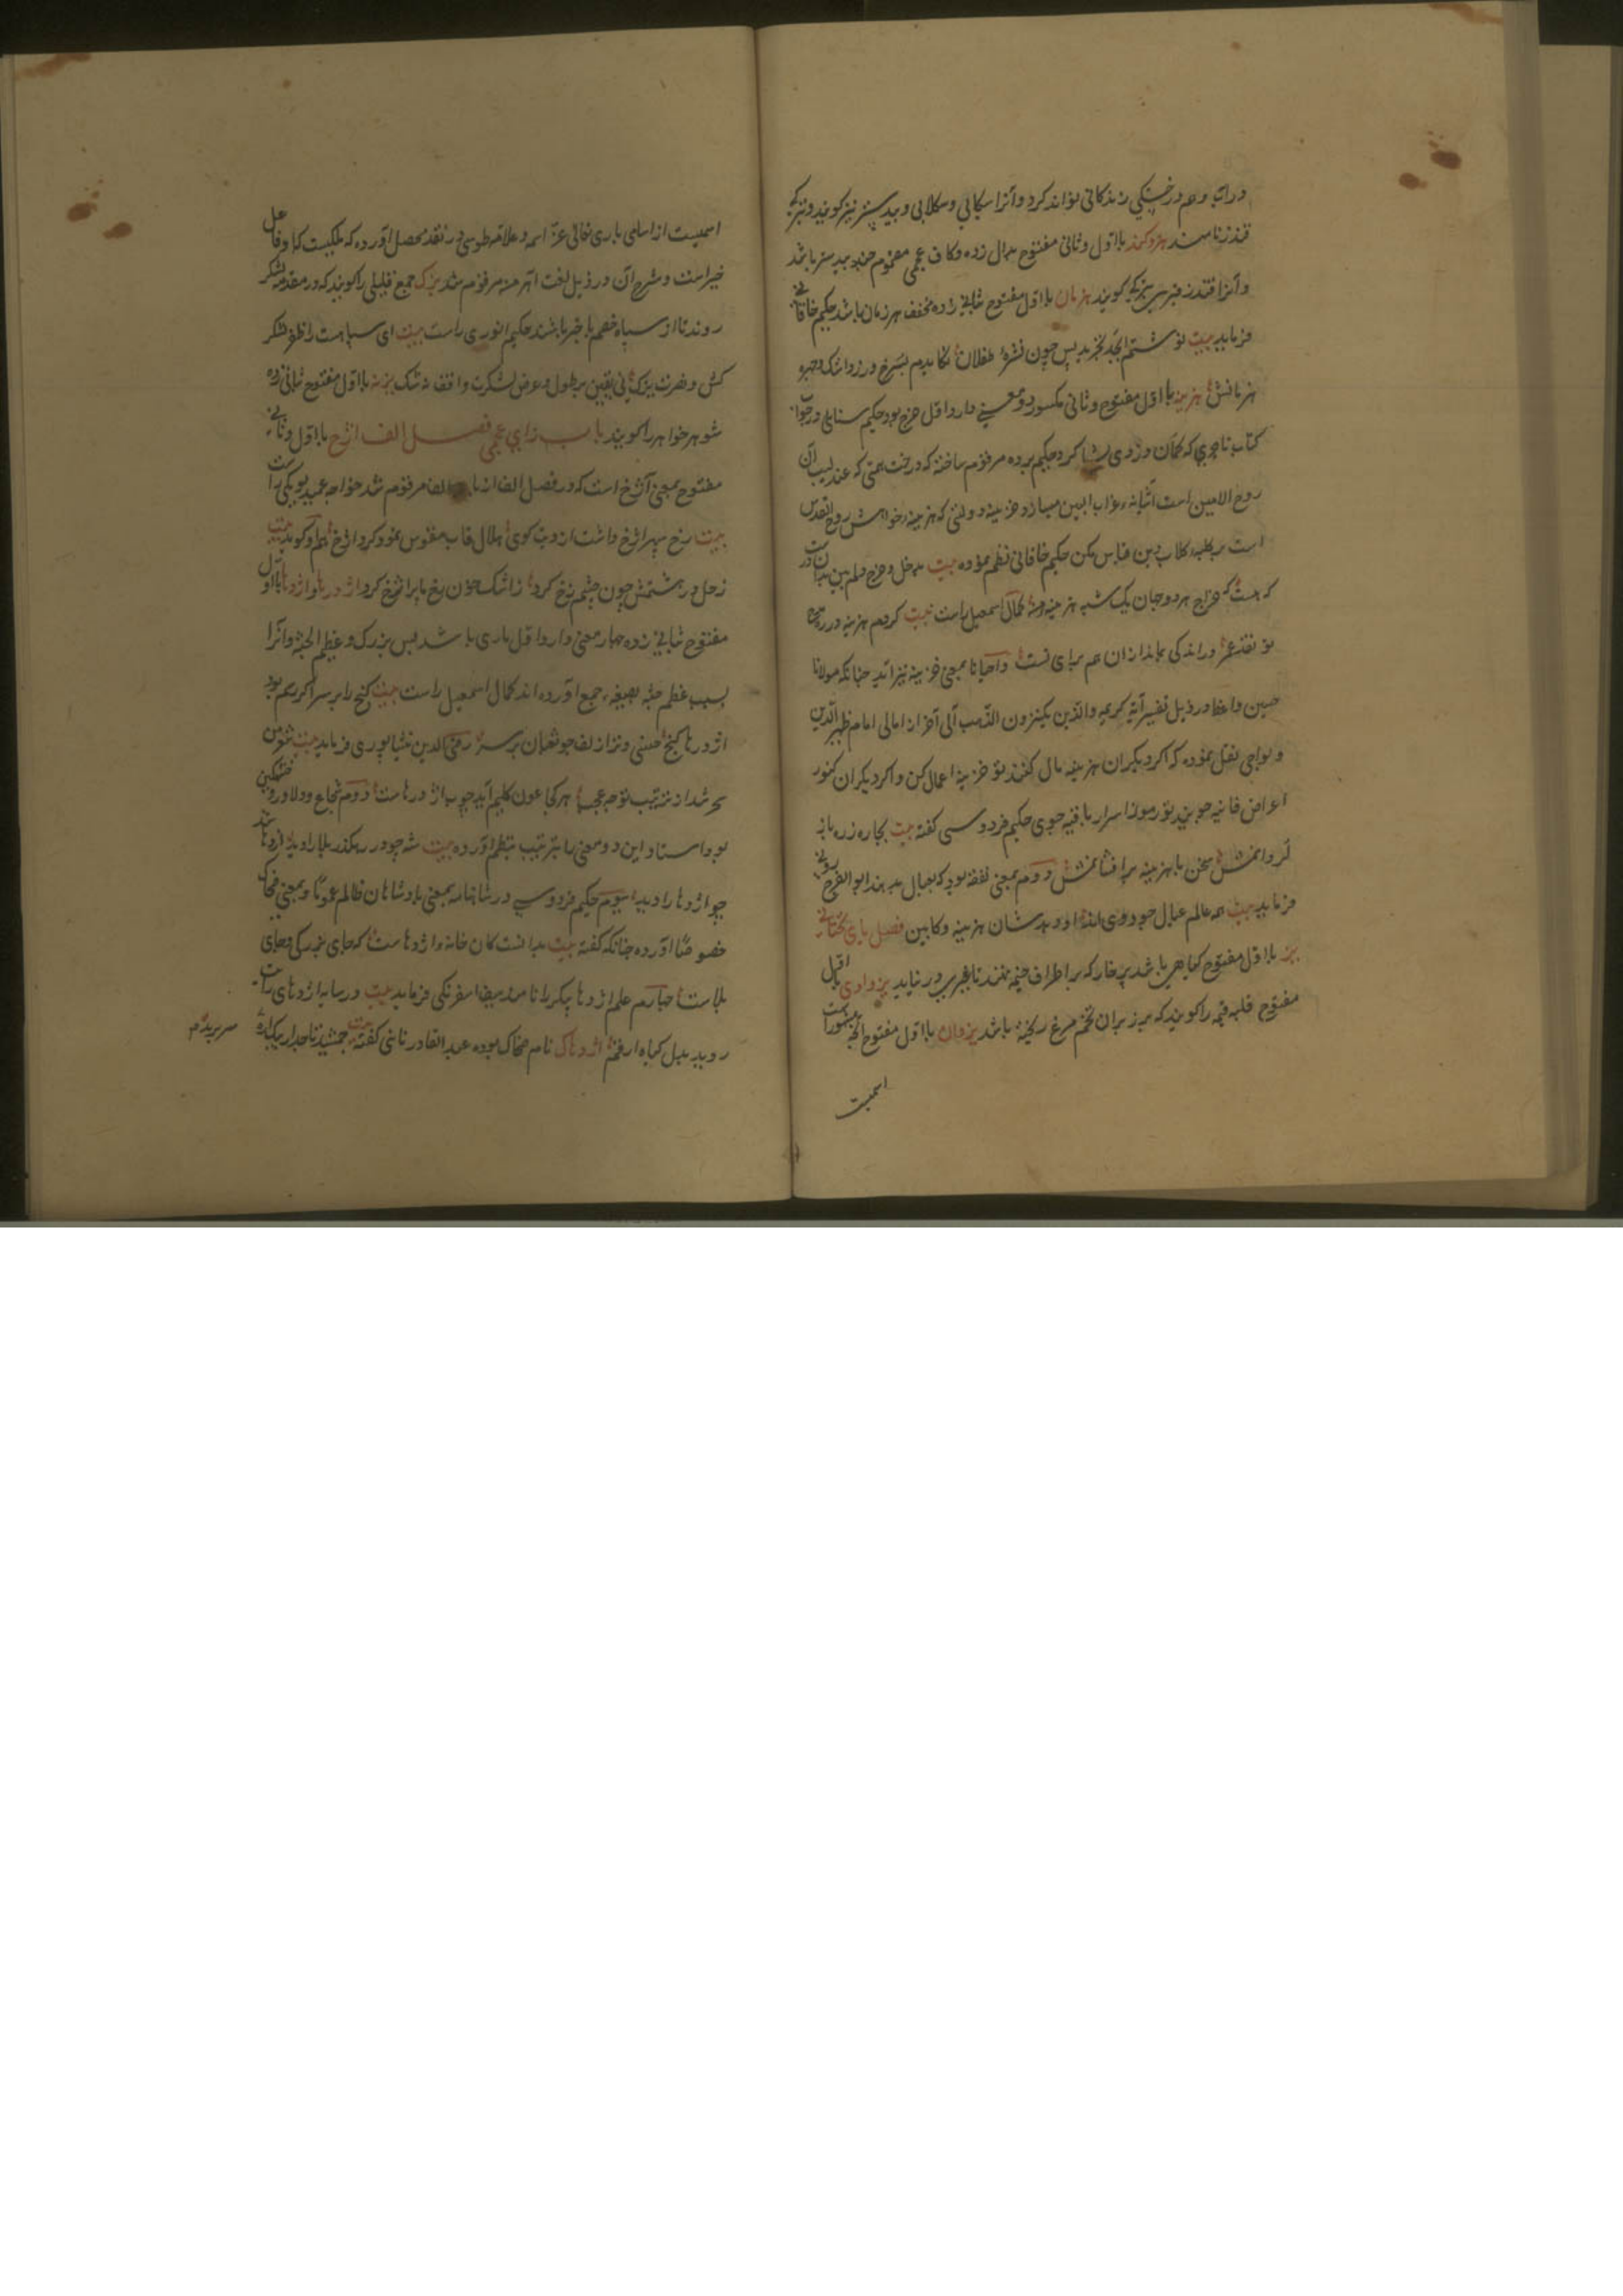 در آب و هم در خشکی زندگانی تواند کرد و آنرا سکابی و سکلابی و بیدستر نیز گویند و بترکی
قندز نامند هزدکند با اول و ثانی مفتوح بدال زده و کاف عجمی مضموم جند بیدستر باشد
و آنرا قندز نیز گویند هزمان با اول مفتوح بثانی زده مخفف هر زمان باشد حکیم خاقانی
فرماید بیت نوشتم ابجد تجرید پس چون نشرۀ طفلان نگاریدم بسرخ و زرد اشک و چهره
هزمانش هزینه با اول مفتوح و ثانی مکسور دو معنی دارد اول خرج بود حکیم سنایی در جواب
کتاب تاجری که گمان دزدی بشاگرد حکیم برده مرقوم ساخته که درخت همتی که عندلیب آن
روح الامین است آشیانه غراب البین مساز و هزینه دولتی که هزینه خوانش روح القدس
است بر کلبه کلاب دین قیاس مکن حکیم خاقانی نظم نموده بیت دخل و خرج دلم بین بدان درست
که هست که خراج هر دو جهان یک شبه هزینه منه کمال اسمعیل راست بیت کردم هزینه در ره مدح
تو نقد عمر ور اندکی بماند از آن هم برای تست و احیانا بمعنی خزینه نیز آید چنانکه مولانا
حسین واعظ در ذیل تفسیر آیۀ کریمه والذین یکنزون الذهب الی آخر از امالی امام ظهیر الدین
ولوالجی نقل نموده که اگر دیگران هزینه مال کنند تو خزینۀ اعمال کن و اگر دیگران کنوز
اعراض فانیه جویند تو رموز اسرار باقیه جوی حکیم فردوسی گفته بیت بچاره ز ره باز
گرداندش سخن با هزینه برافشاندش دوم بمعنی نفقه بود که بعیال بدهند ابوالفرج رونی
فرماید بیت همه عالم عیال جود وی اند او دهدشان هزینه و کابین فصل یای تحتانی
یز با اول مفتوح گیاهی باشد پرخار که بر اطراف خیمه نهند تا غریب در نیاید یزدادی با اول
مفتوح قلیه قیمه را گویند که بر زبران تخم مرغ ریخته باشند یزدان با اول مفتوح
اسمیست
اسمیست از اسامی باری تعالی عز اسمه و علامه طوسی در نقد محصل آورده که ملکیست که فاعل
خیر است و شرح آن در ذیل لغت اهرمن مرقوم شد یزک جمع قلیلی را گویند که در مقدمه لشکر
روند تا از سپاه خصم باخبر باشند حکیم انوری راست بیت ای سپاهت را ظفر لشکر
کش و نصرت یزک نی یقین بر طول و عرض لشکرت واقف نه شک یزنه با اول مفتوح بثانی زده
شوهر خواهر را گویند باب زای عجمی فصل الف اژخ با اول و ثانی
مفتوح بمعنی آژخ است که در فصل الف از باب الف مرقوم شد خواجه عمید لوبکی راست
بیت رخ سپهر اژخ داشت از دبت کوی هلال قاب مقوس نمود کرد اژخ هم او گوید بیت
زحل در هشتمش چون چشم نرخ کرد ز اشک خون رخ ما پر اژخ کرد اژدرها و اژدها با اول
مفتوح بثانی زده چهار معنی دارد اول ماری باشد بس بزرگ و عظیم الجثه و آنرا
بسبب عظم جثه بصیغه جمع آورده اند کمال اسمعیل راست بیت گنج را بر سر اگر رسم بود
اژدرها گنج حسنی و ترا زلف چو ثعبان بر سر رضی الدین نیشاپوری فرماید بیت
سحر شد از ترتیب تو چه عجب هر کجا عون کلیم آید چوب اژدرهاست دوم شجاع و دلاور و خشمگین
بود استاد این دو معنی را بترتیب بنظم آورده بیت شه چو در رهگذر بلا را دید اژدها شد
چو اژدها را دید سیوم حکیم فردوسی در شاهنامه بمعنی پادشاهان ظالم عموما و بمعنی ضحاک
خصوصا آورده چنانکه گفته بیت بدانست کان خانه اژدهاست که جای بزرگی و جای
بلاست چهارم علم اژدها پیکر را نامند سیف اسفرنگی فرماید بیت در سایه اژدهای رایت
روید بدل گیاه ارقم اژدهاک نام ضحاک بوده عبد القادر نائینی گفته بیت جمشید تاجدار بیکباره
سر بریده